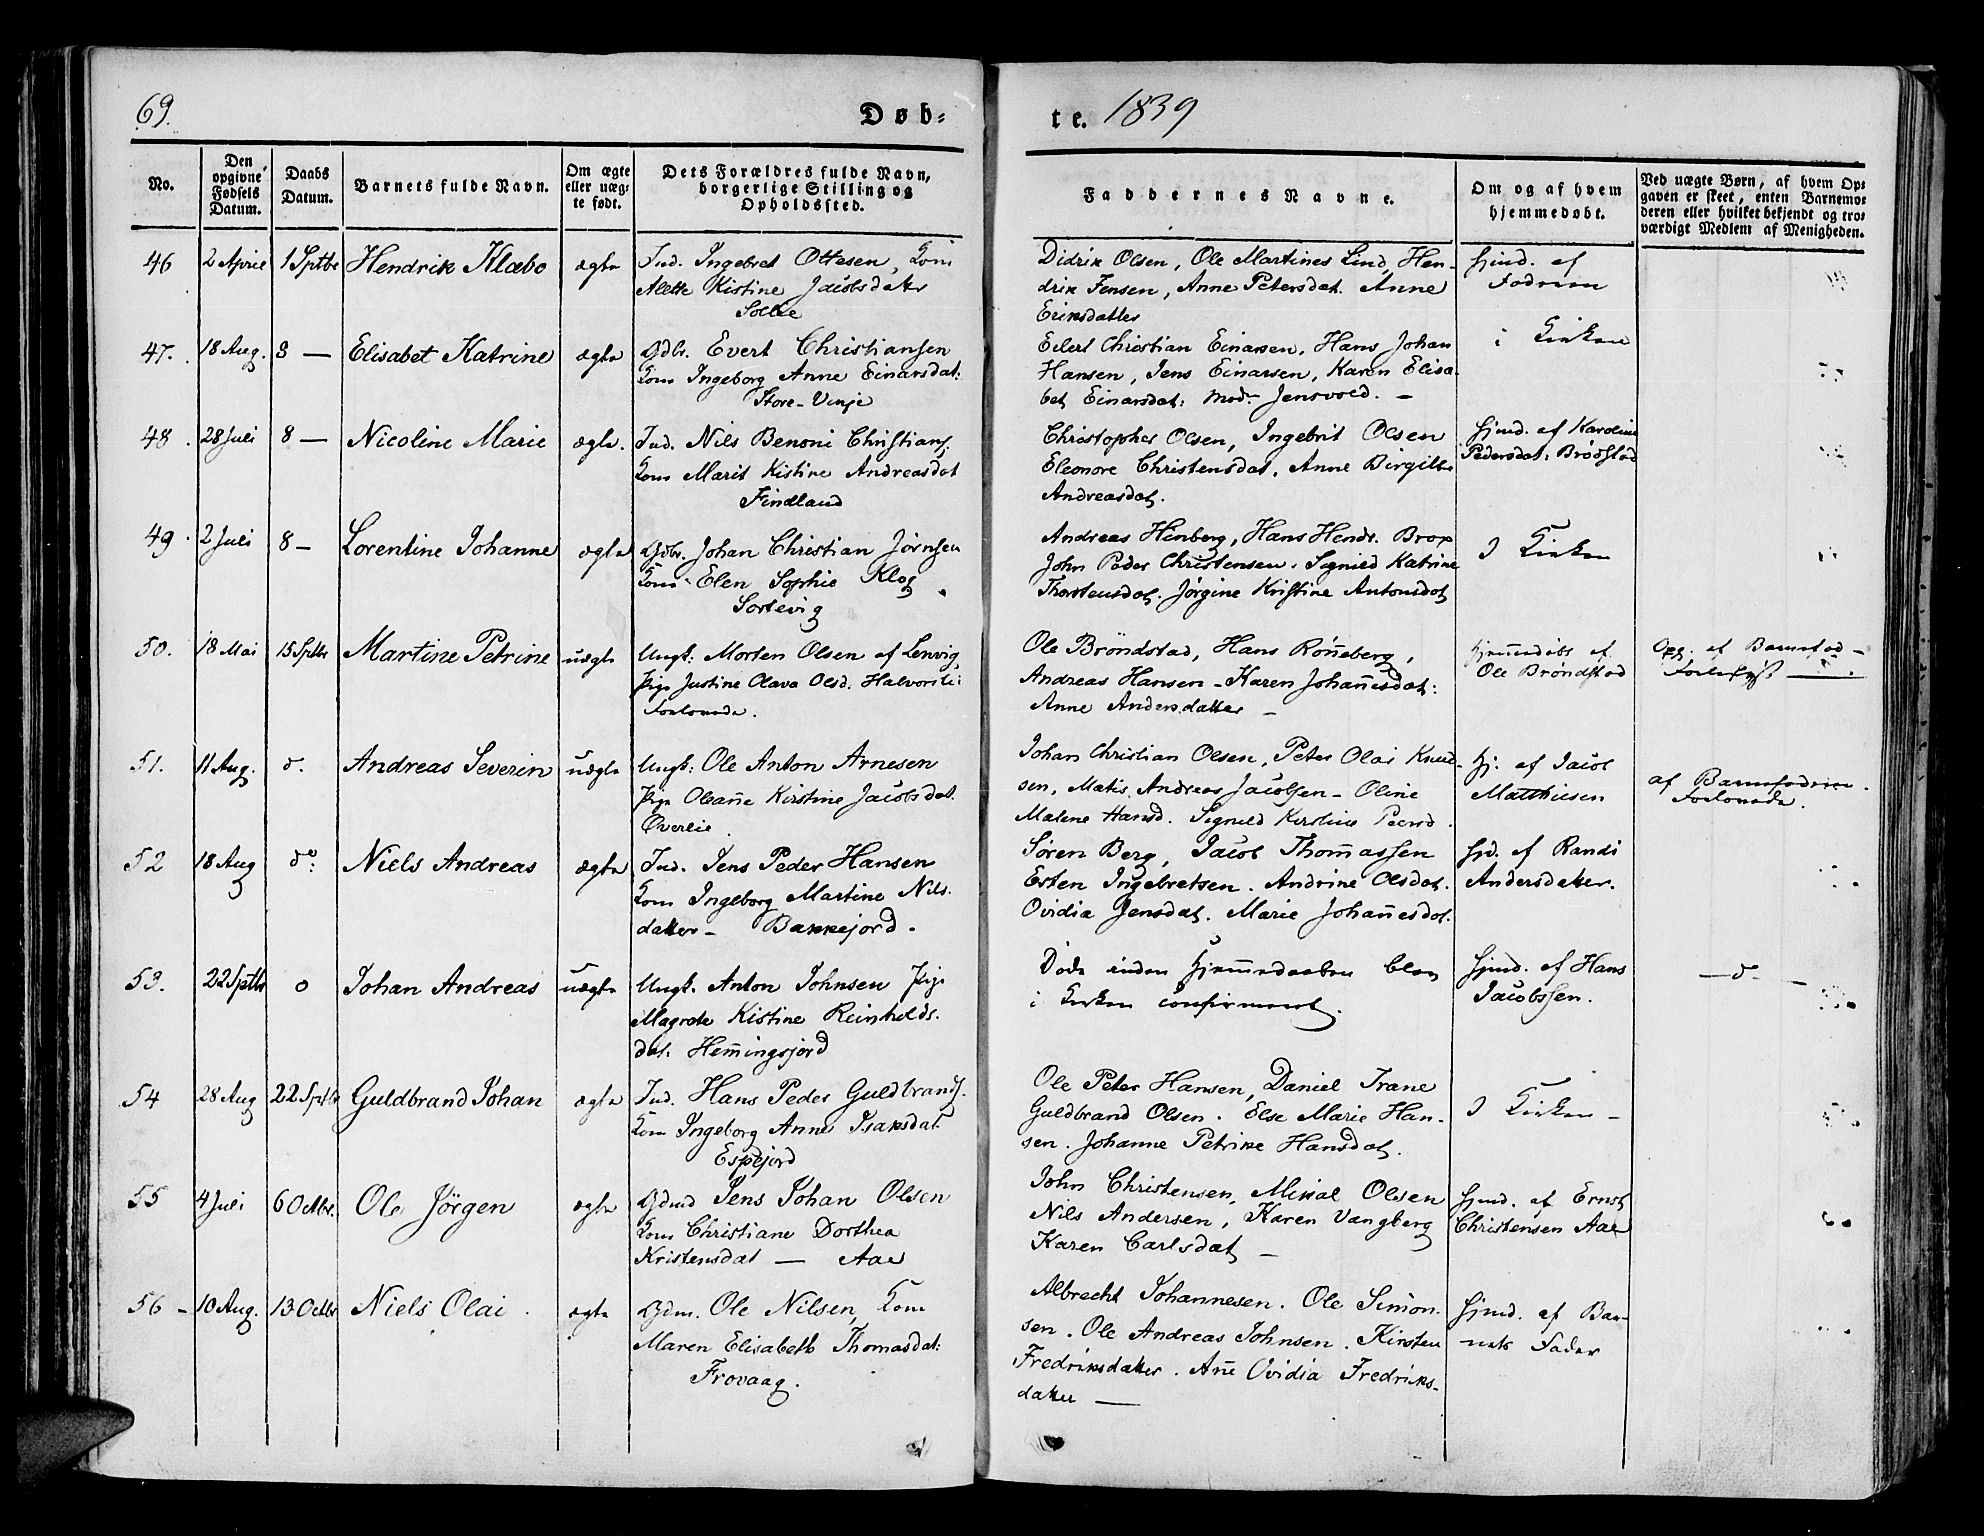 69.
Døb-
te. 1839
No.
Den opgivne Fødsels Datum.
Daabs Datum.
Barnets fulde Navn.
Om ægte eller uægte født.
Dets Forældres fulde Navn, borgerlige Stilling og Opholdssted.
Faddernes Navne.
Om og af hvem hjemmedøbt.
Ved uægte Børn, af hvem Opgaven er skeet, enten Barnemoderen eller hvilket bekjendt og troværdigt Medlem af Menigheden.
46 2 April 1 Sptbr Hendrik Klæbo ægte
Ind. Ingebret Ottesen, Kom
Alette Kistine Jacobsdatter
Didrik Olsen, Ole Martines Lind, Hen-
drik Jensen, Anne Petersdat. Anne
Eriksdatter
Hjmd. af
Fadren
47. 18 Aug. 8 — Elisabet Katrine ægte
Gdbr. Evert Christiansen
Kom Ingeborg Anne Einarsdat:
Store-Vinje
Eilert Christian Einarsen, Hans Johan
Hansen, Jens Einarsen, Karen Elisa-
bet Einarsdat: Mod. Jensvold. —
i Kirken
48. 28 Juli 8 — Nicoline Marie ægte.
Ind. Nils Benoni Christians.
Kom Marit Kistine Andreasdat
Findland
Christopher Olsen, Ingebrit Olsen
Eleonore Christensdat. Anne Birgitte
Andreasdat.
Hjmd. af Karoline
Pedersdat: Brödstad
49. 2 Juli 8 — Lorentine Johanne ægte
Gdbr. Johan Christian Jörnsen
Kom Elen Sophie Klog
Sortevig
Andreas Henberg, Hans Hendr. Brox
John Peder Christensen. Sognild Katrine
Thorstensdat. Jørgine Kristine Antonsdat
I Kirken
50. 18 Mai 15 Sptbr Martine Petrine uægte
Ungk: Morten Olsen af Lenvig,
Pige Justine Olava Olsd. Halvors
Forlovede.
Ole Bröndstad, Hans Rönneberg,
Andreas Hansen - Karen Johannesdat:
Anne Andersdatter —
Hjemmedøbt af
Ole Bröndstad
Opg. af
51. 11 Aug. d. Andreas Severin uægte
Ungk: Ole Anton Arnesen
Pige Oleane Kirstine Jacobsdat.
Överlie.
Johan Christian Olsen, Peter Olai Knud-
sen, Matis Andreas Jacobsen - Oline
Malene Hansd. Sognild Kirstine Peersd.
hj. af Jacob
Matthiesen
af Barnefadren.
Forlovede.
52 18 Aug d°: Niels Andreas ægte
Ind. Jens Peder Hansen
Kom Ingeborg Martine Nils.
datter - Bakkejord.
Søren Berg, Jacob Thomassen
Erten Ingebretsen. Andrine Olsdat.
Ovidia Jensdat. Marie Johannesdat.
Hjd. af Randi
Andersdatter.
53. 22 Sptbr o Johan Andreas uægte
Ungk. Anton Johnsen Pige
Magrete Kistine Reinholds.
dat. Hemingsjord
Döde inden Hjemmedaaben blev
i Kirken confirmeret.
Hjmd. af Hans
Jacobsen.
— d° —
54 28 Aug 22 Sptbr Guldbrand Johan ægte
Ind. Hans Peder Guldbrands.
Kom Ingeborg Anne Isaksdat.
Espejord
Ole Peter Hansen, Daniel Trane
Guldbrand Olsen. Else Marie Han-
sen. Johanne Petrine Hansdat.
I Kirken —
55 4 Juli 6 Octbr. Ole Jörgen ægte
Gdmd Jens Johan Olsen
Kom Christiane Dorthea
Kristensdat — Aae
John Christensen, Mikal Olsen
Nils Andersen, Karen Vangberg
Karen Carlsdat —
Hjmd. af Ernst
Christensen Aae
56 - 10 Aug. 13 Octbr Niels Olai. ægte
Gdm. Ole Nilsen, Kom
Maren Elisabeth Thomasdat:
Frovaag.
Albrecht Johannesen. Ole Simon-
sen. Ole Andreas Johnsen. Kirsten
Fredriksdatter. Ane Ovidia Fredriks-
datter —
Hjmd. af Bar-
nets Fader